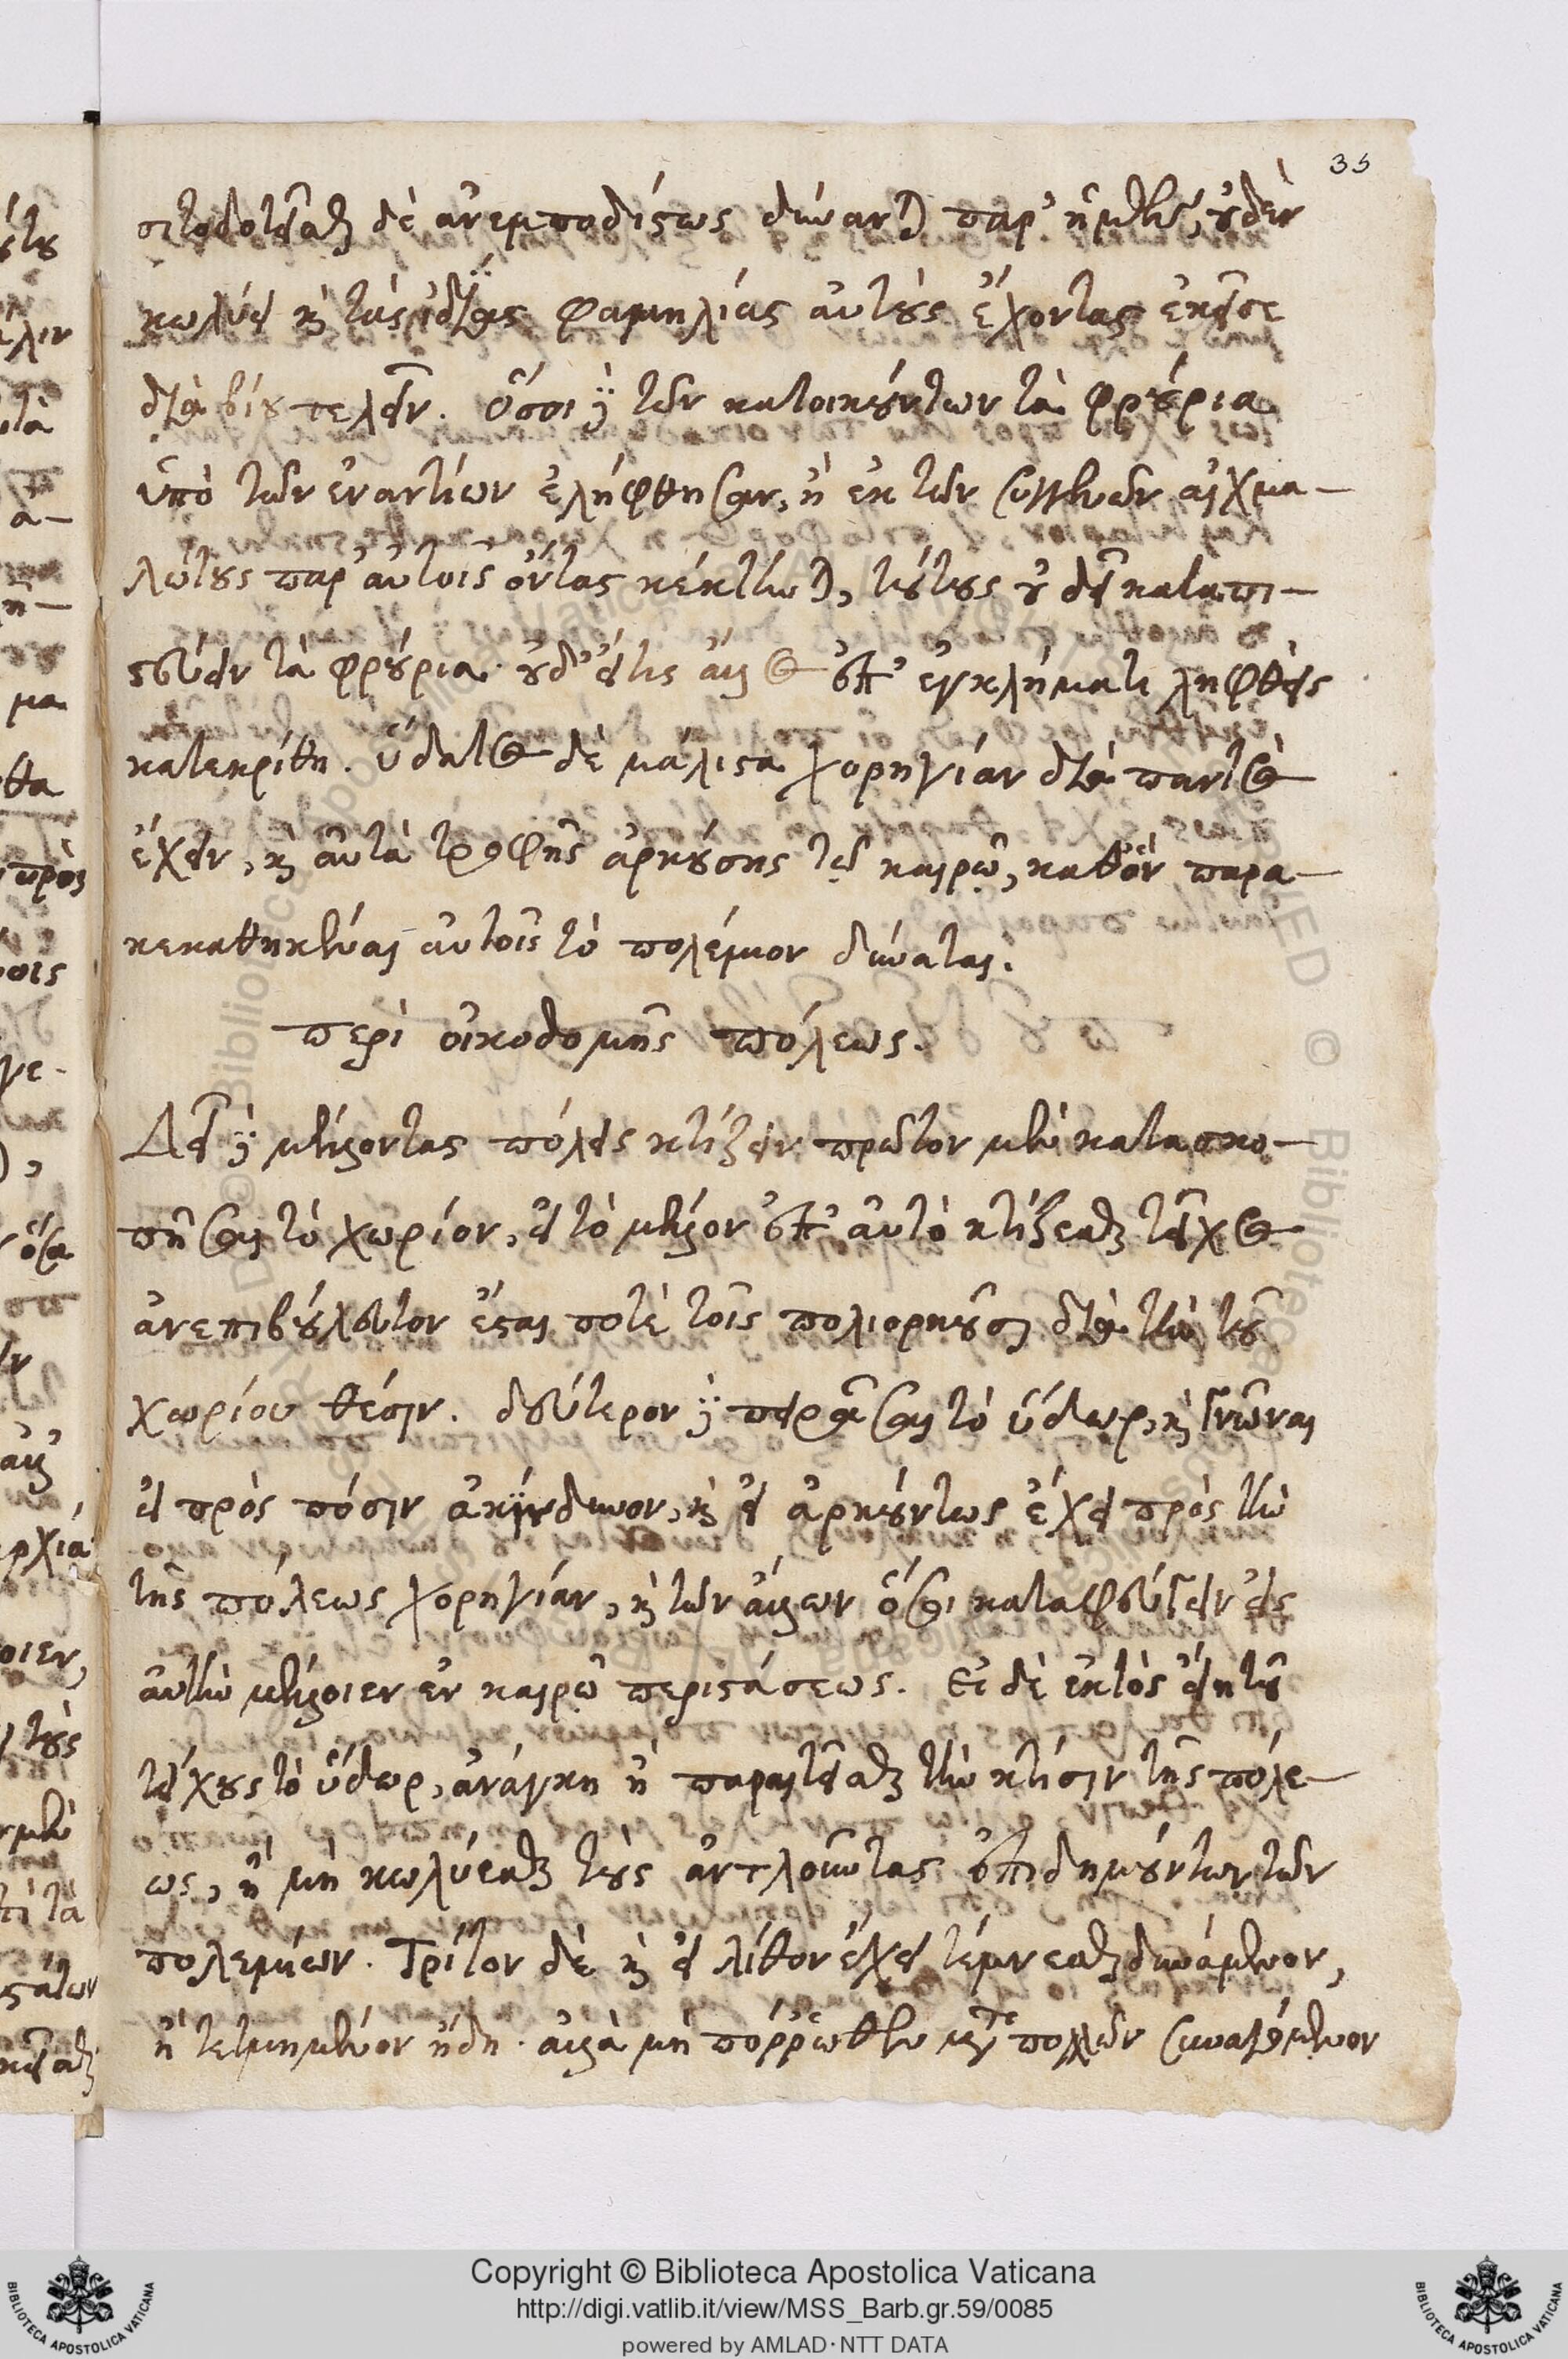 35
σιτοδοτεῖσθαι δὲ ἀνεμποδίστως δύνανται παρ' ἡμῶν, οὐδὲν
κωλύει καὶ τὰς ἰδίας φαμηλίας αὐτοὺς ἔχοντας ἐκεῖσε
διὰ βίου τελεῖν. Ὅσοι δὲ τῶν κατοικούντων τὰ φρούρια
ὑπὸ τῶν ἐναντίων ἐλήφθησαν, ἢ ἐκ τῶν συγγενῶν αἰχμα-
λώτους παρ' αὐτοῖς ὄντας κέκτηνται, τούτους οὐ δεῖ καταπι-
στεύειν τὰ φρούρια. οὐδ' εἴτις ἄλλος ἐπ' ἐγκλήματι ληφθεὶς
κατεκρίθη. ὕδατος δὲ μάλιστα χορηγίαν διὰ παντὸς
ἔχειν, καὶ αὐτὰ τροφῆς ἀρκούσης τῷ καιρῷ, καθ' ὃν παρα-
κεκαθηκέναι αὐτοῖς τὸ πολέμιον δύναται.
περὶ οἰκοδομῆς πόλεως.
Δεῖ δὲ μέλλοντας πόλεις κτίζειν πρῶτον μὲν κατασκο-
πῆσαι τὸ χωρίον, εἰ τὸ μέλλον ἐπ' αὐτὸ κτίζεσθαι τεῖχος
ἀνεπιβούλευτον ἔσται ποτὲ τοῖς πολιορκοῦσι διὰ τὴν τοῦ
χωρίου θέσιν. δεύτερον δὲ πειρᾶσαι τὸ ὕδωρ, καὶ γνῶναι
εἰ πρὸς πόσιν ἀκίνδυνον, καὶ εἰ ἀρκούντως ἔχει πρὸς τὴν
τῆς πόλεως χορηγίαν, καὶ τῶν ἄλλων ὅσοι καταφεύγειν εἰς
αὐτὴν μέλλοιεν ἐν καιρῷ περιστάσεως. Εἰ δὲ ἐκτὸς εἴη τοῦ
τείχους τὸ ὕδωρ, ἀνάγκη ἢ παραιτεῖσθαι τὴν κτίσιν τῆς πόλε-
ως, ἢ μὴ κωλύεσθαι τοὺς ἀντλοῦντας ἐπιδημούντων τῶν
πολεμίων. Τρίτον δὲ καὶ εἰ λίθον ἔχει τέμνεσθαι δυνάμενον,
ἢ τετμημένον ἤδη. ἀλλὰ μὴ πόρρωθεν μετὰ πολλῶν συναγόμενον
Copyright © Biblioteca Apostolica Vaticana
http://digi.vatlib.it/view/MSS_Barb.gr.59/0085
powered by AMLAD·NTT DATA